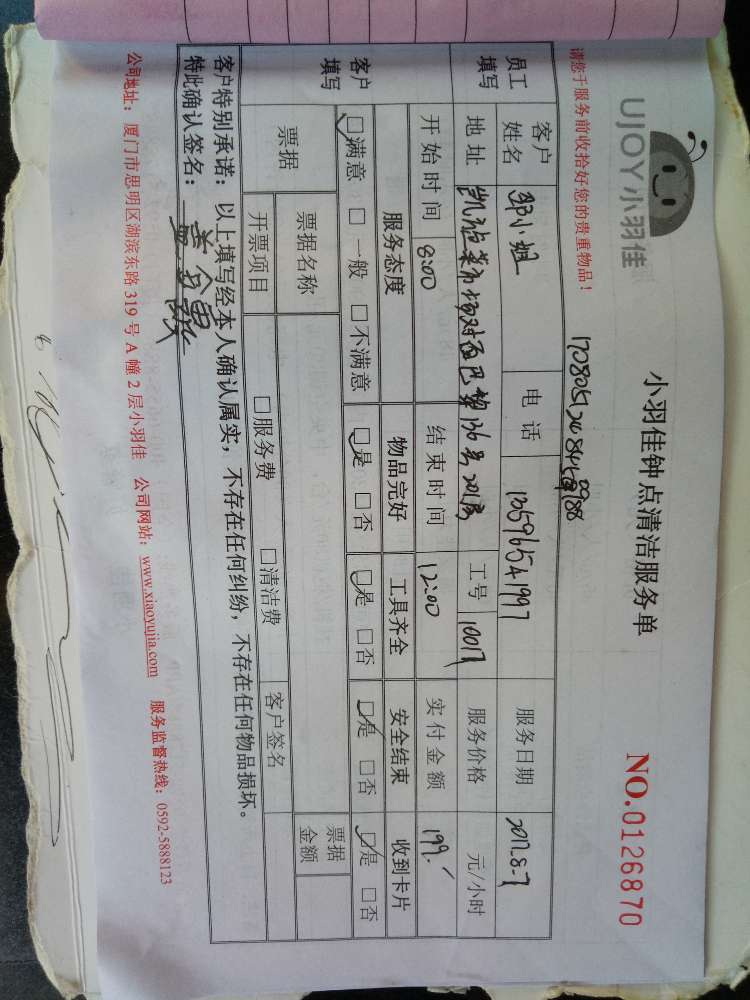 UJOY小羽佳
小羽佳钟点清洁服务单
NO.0126870
请您于服务前收拾好您的贵重物品！
员工填写
客户姓名 邹小姐 电话 13596541997 服务日期 2017.8-7
地址 136号201房 工号 10017 服务价格 元/小时
开始时间 8:00 结束时间 12:00 实付金额 199.
客户填写
服务态度 物品完好 工具齐全 安全结束 收到卡片
☑满意 □一般 □不满意 ☑是 □否 ☑是 □否 ☑是 □否 ☑是 □否
票据 票据名称 票据金额
开票项目 □服务费 □清洁费 客户签名
客户特别承诺：以上填写经本人确认属实，不存在任何纠纷，不存在任何物品损坏。
特此确认签名：
公司地址：厦门市思明区湖滨东路319号A幢2层小羽佳 公司网站：www.xiaoyujia.com 服务监督热线：0592-5888123